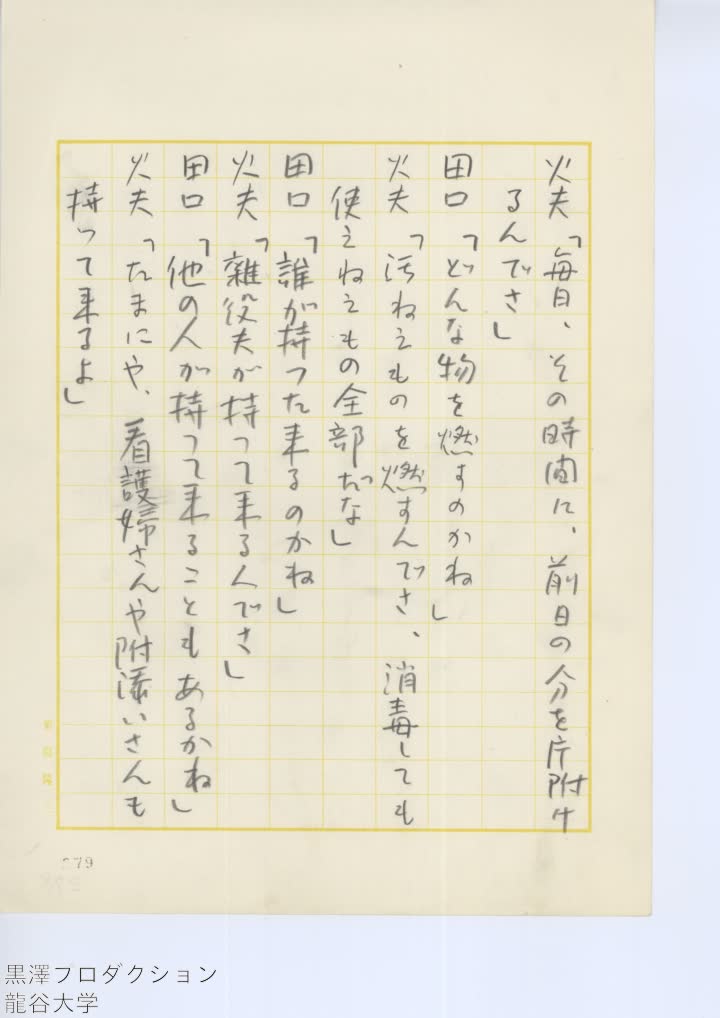 火夫「毎日、その時間に、前日の分を片附け
るんでさ」
田口「どんな物を燃すのかね」
火夫「汚ねえものを燃すんでさ、消毒しても
使えねえもの全部だな」
田口「誰が持った来るのかね」
火夫「雑役夫が持って来る人でさ」
田口「他の人が持って来ることもあるかね」
火夫「たまにや、看護婦さんや附添いさんも
持って来るよ」
279
黒澤プロダクション
龍谷大学